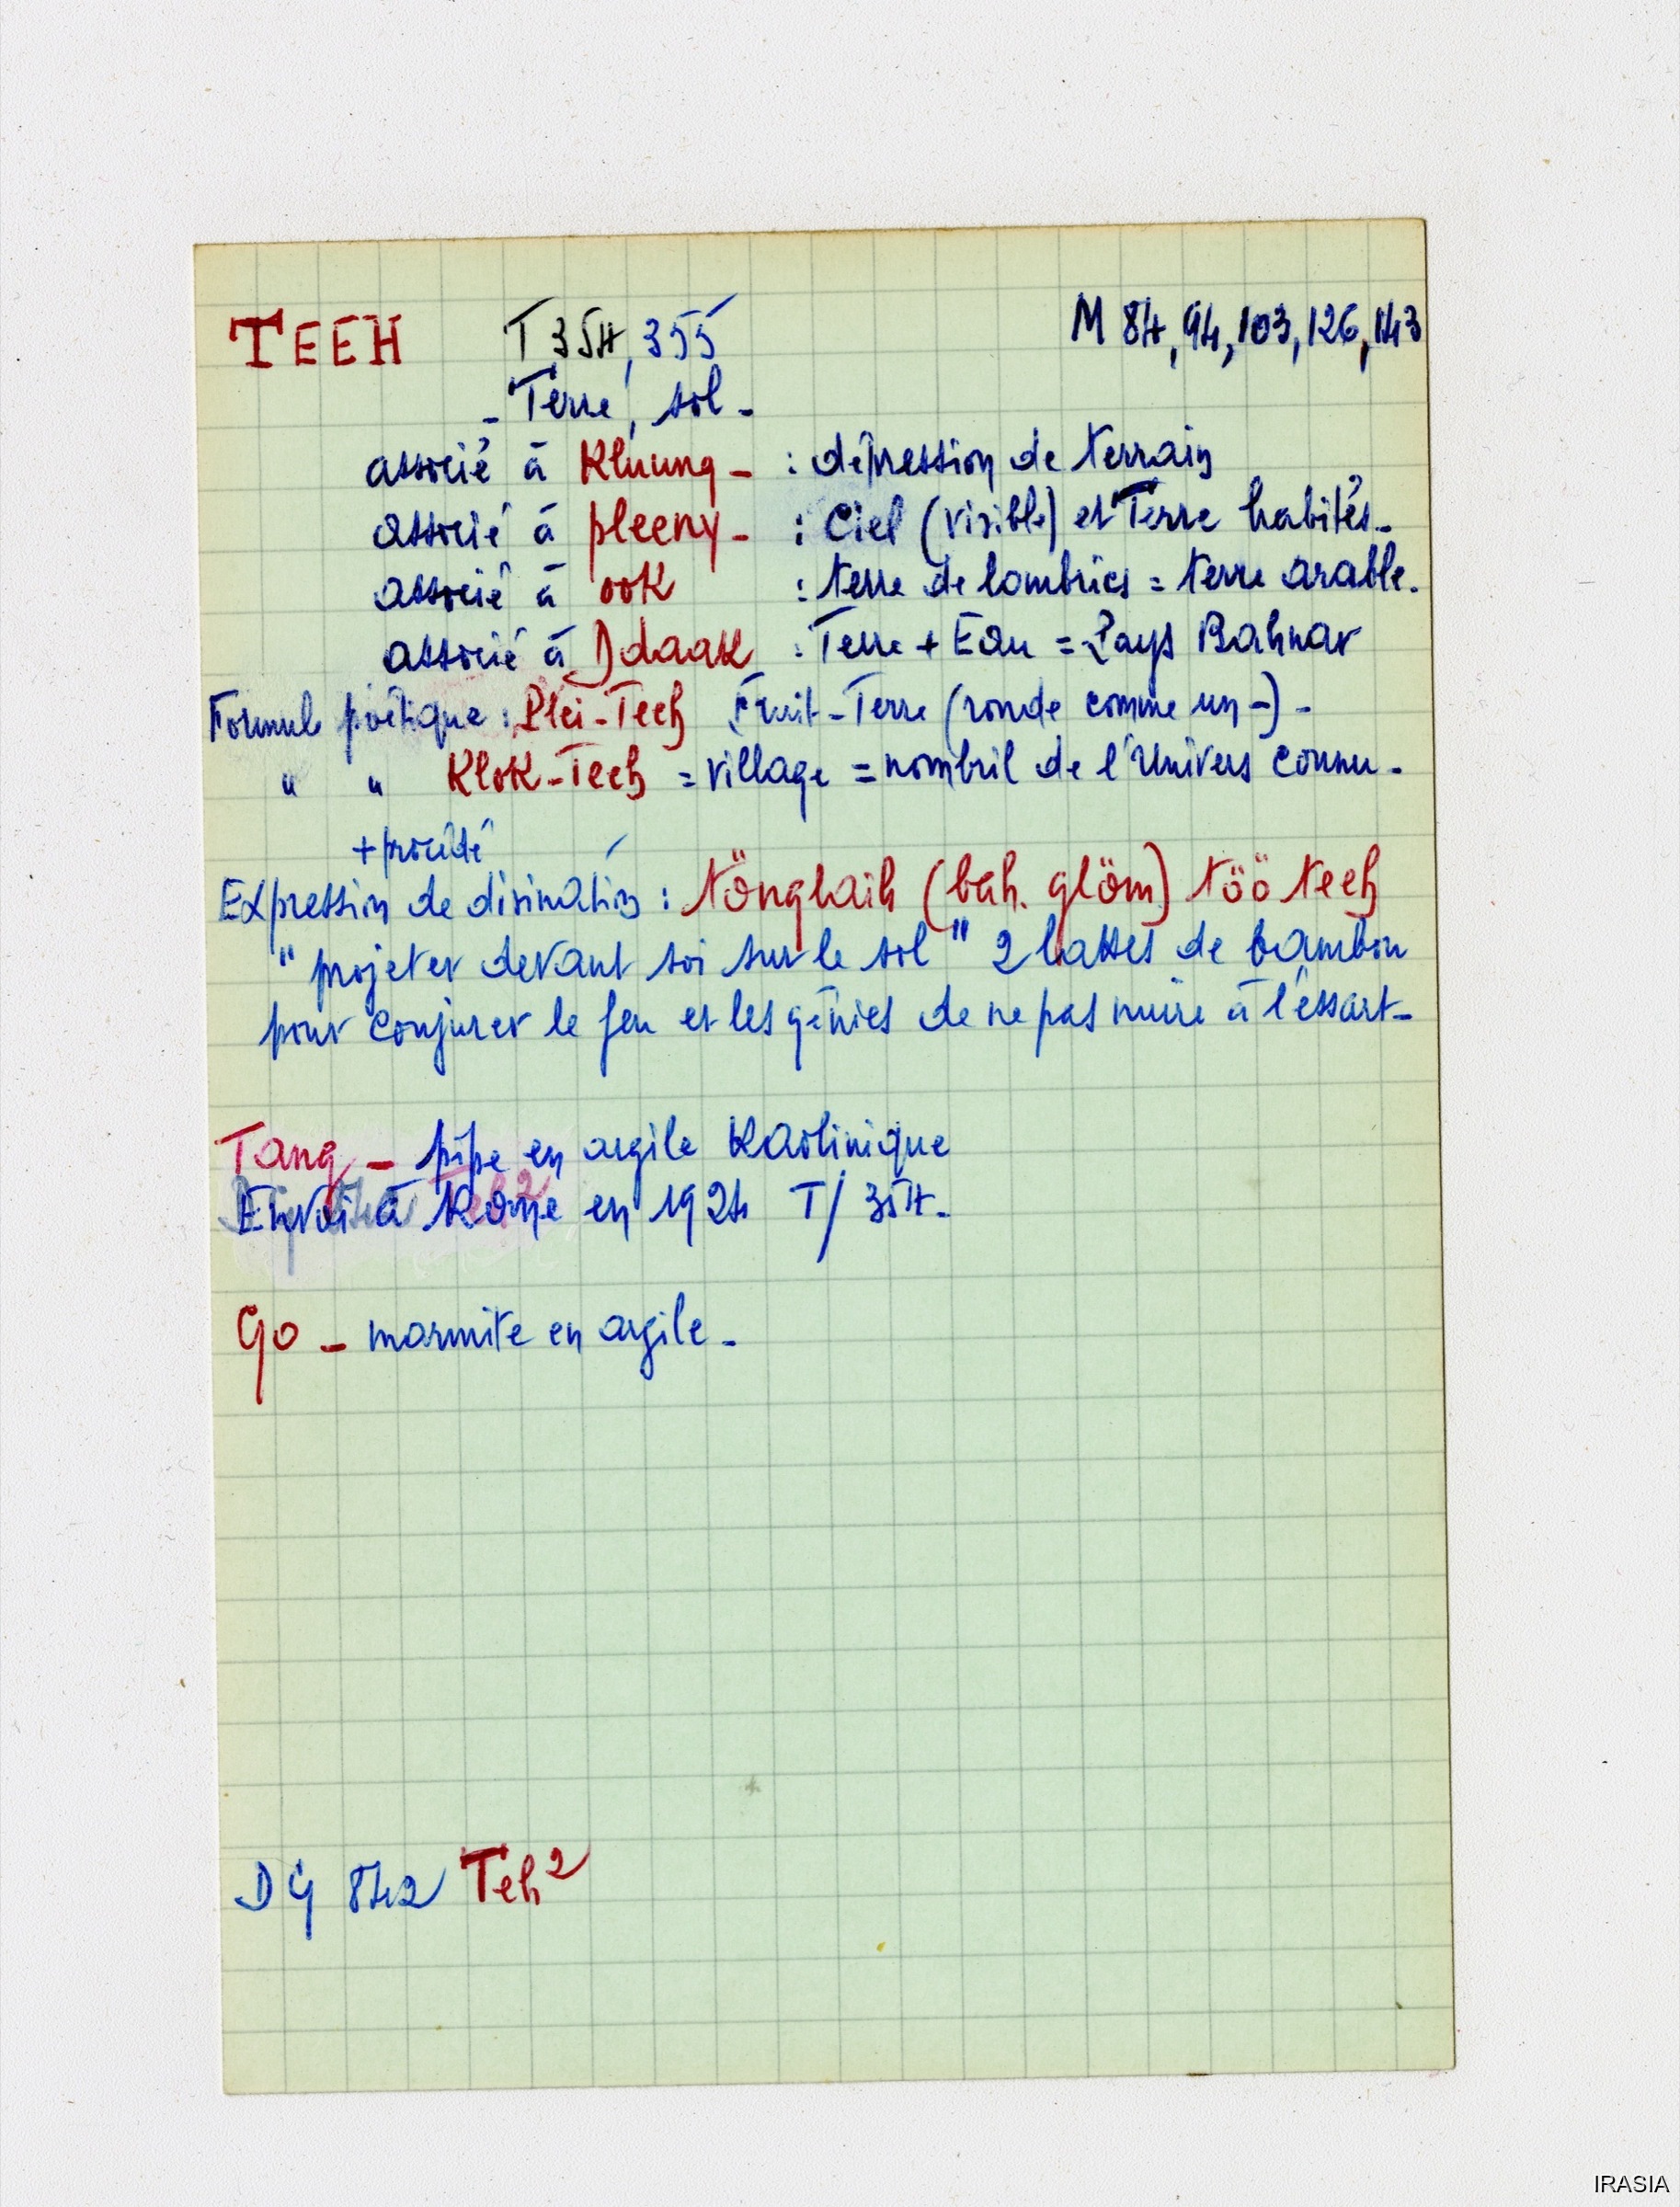 TEEH T 354, 355 M 84, 94, 103, 126, 143
- Terre, sol -
associé à Kluung - : dépression de terrain
associé à pleeny - : Ciel (visible) et Terre habités -
associé à ook : terre de lombrics = terre arable.
associé à Ddaak : Terre + Eau = Pays Bahnar
Formule poétique : Plei-Teeh Fruit-Terre (ronde comme un -) -
" " Klok-Teeh = village = nombril de l'Univers connu -
+ procédé
Expression de divination : tönglaih (bah. glöm) töö teeh
" projeter devant soi sur le sol " 2 lattes de bambou
pour conjurer le feu et les génies de ne pas nuire à l'éssart -
Tang - pipe en argile Kaolinique
Envoi à Rome en 1924 T/ 354 -
Go - marmite en argile -
DG 842 Teh²
IRASIA